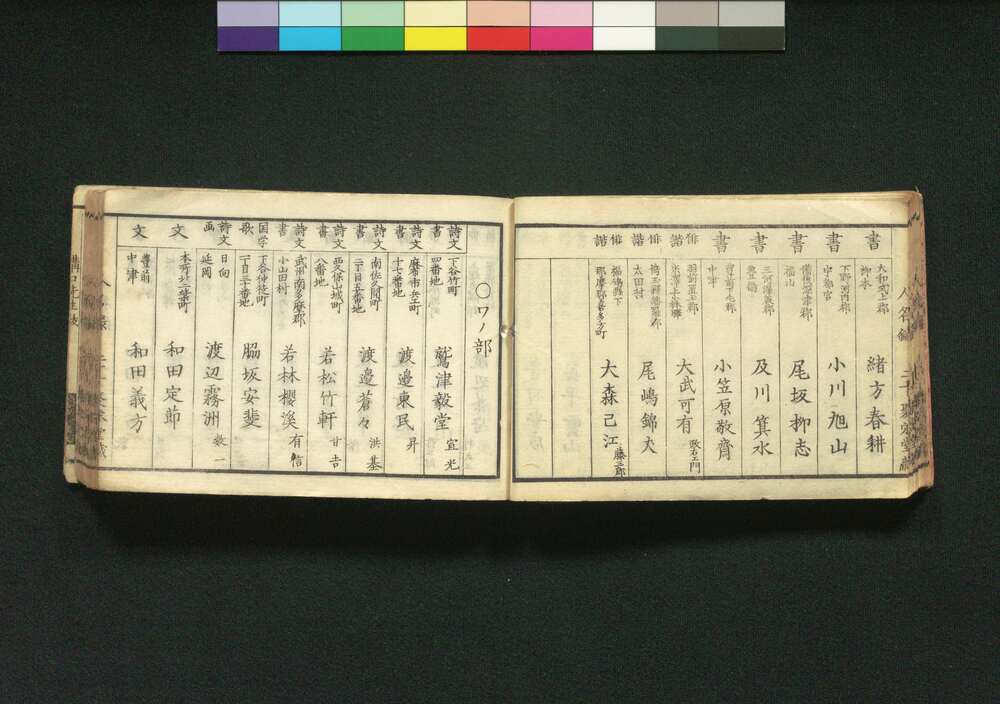 書 大和式上郡 柳本 緒方春耕
書 下野河内郡 宇都宮 小川旭山
書 備後深津郡 福山 尾坂柳志
書 三河渥美郡 豊橋 及川箕水
書 豊前下毛郡 中津 小笠原敬齋
俳諧 大武可有 政右エ門
俳諧 太田村 尾嶋錦犬
俳諧 福嶋縣下 耶摩郡喜多方町 大森己江 藤三郎
〇ワノ部
詩文書 下谷竹町 四番地 鷲津毅堂 宣光
詩文書 麻布市兵エ町 十七番地 渡邊東民 昇
詩文書 南佐久間町 二丁目五番地 渡邊蒼々 洪基
詩文書 西久保山城町 八番地 若松竹軒 甘吉
詩文書 武州南多摩郡 小山田村 若林櫻溪 有信
国学歌 下谷仲徒町 一丁目三十番地 脇坂安斐
詩文画 日向 延岡 渡辺霧洲 毅一
文 本所北二葉町 和田定節
文 豊前 中津 和田義方